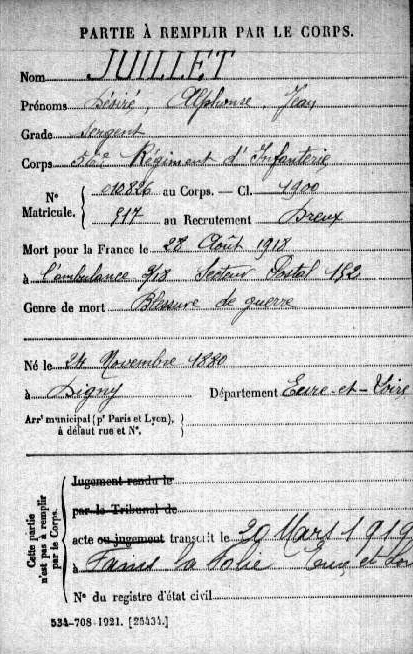 PARTIE À REMPLIR PAR LE CORPS.
Nom JUILLET
Prénoms Désiré, Alphonse, Jean
Grade Sergent
Corps Régiment d'Infanterie
N° Matricule. 010826 au Corps. — Cl. 1900
917 au Recrutement Dreux
Mort pour la France le 28 Août 1918
à l'ambulance 3/18 Secteur Postal 182
Genre de mort Blessure de guerre
Né le 24 Novembre 1880
à Digny Département Eure-et-Loire
Arrt municipal (pr Paris et Lyon),
à défaut rue et N°.
Cette partie n'est pas à remplir par le Corps.
Jugement rendu le
par le Tribunal de
acte ou jugement transcrit le 20 Mars 1919
à la Folie Eure et Loi
N° du registre d'état civil
534-708-1921. [26434.]